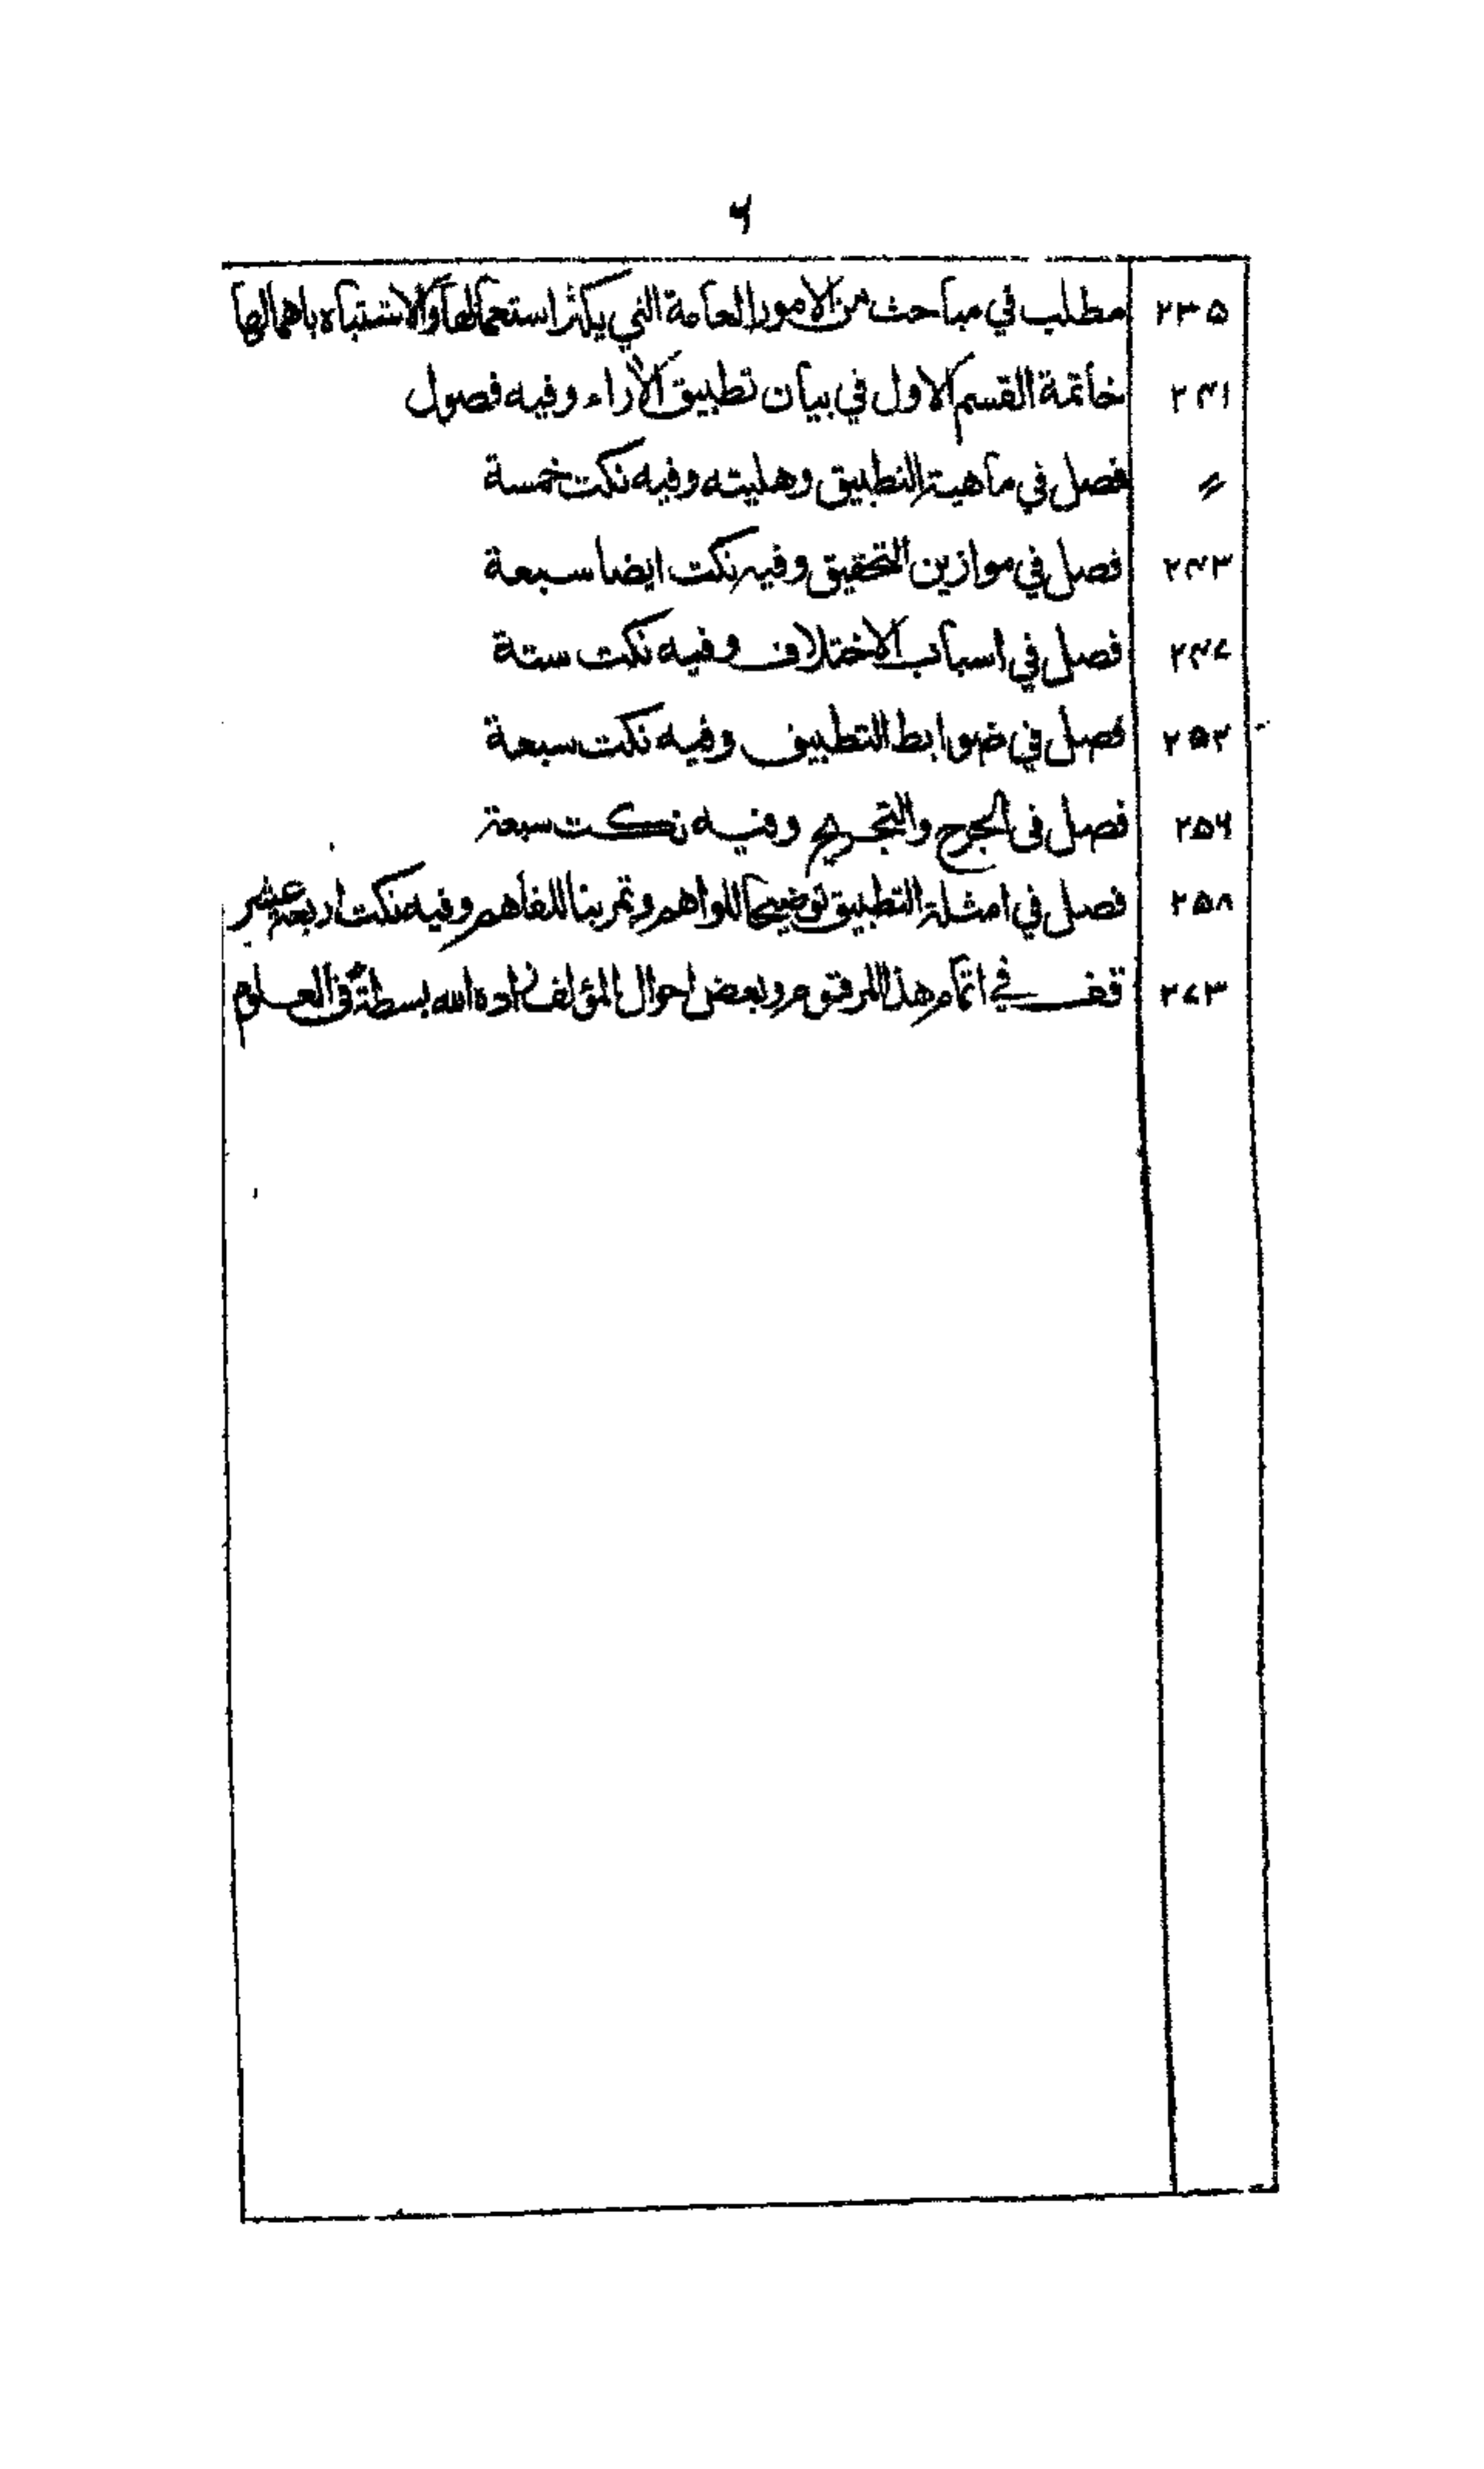 ۶
۲۳۵ مطلب في مباحث من الامور العامة التي يكثر استعمالها والاشتباه باهمالها
۲۴۱ خاتمة القسم الاول في بيان تطبيق الآراء وفيه فصول
〃 فصل في ماهية التطبيق وهليته وفيه نكت خمسة
۲۴۳ فصل في موازين التحقيق وفيه نكت ايضا سبعة
۲۴۷ فصل في اسباب الاختلاف وفيه نكت ستة
۲۵۲ فصل في ضوابط التطبيق وفيه نكت سبعة
۲۵۶ فصل في الجرح والتجريح وفيه نكت سبعة
۲۵۸ فصل في امثلة التطبيق توضيحا للواهم وتمرينا للفاهم وفيه نكت اربعة عشر
۲۷۳ قف في اتمام هذا المرقوم وبعض احوال المؤلف زاده الله بسطة في العلوم